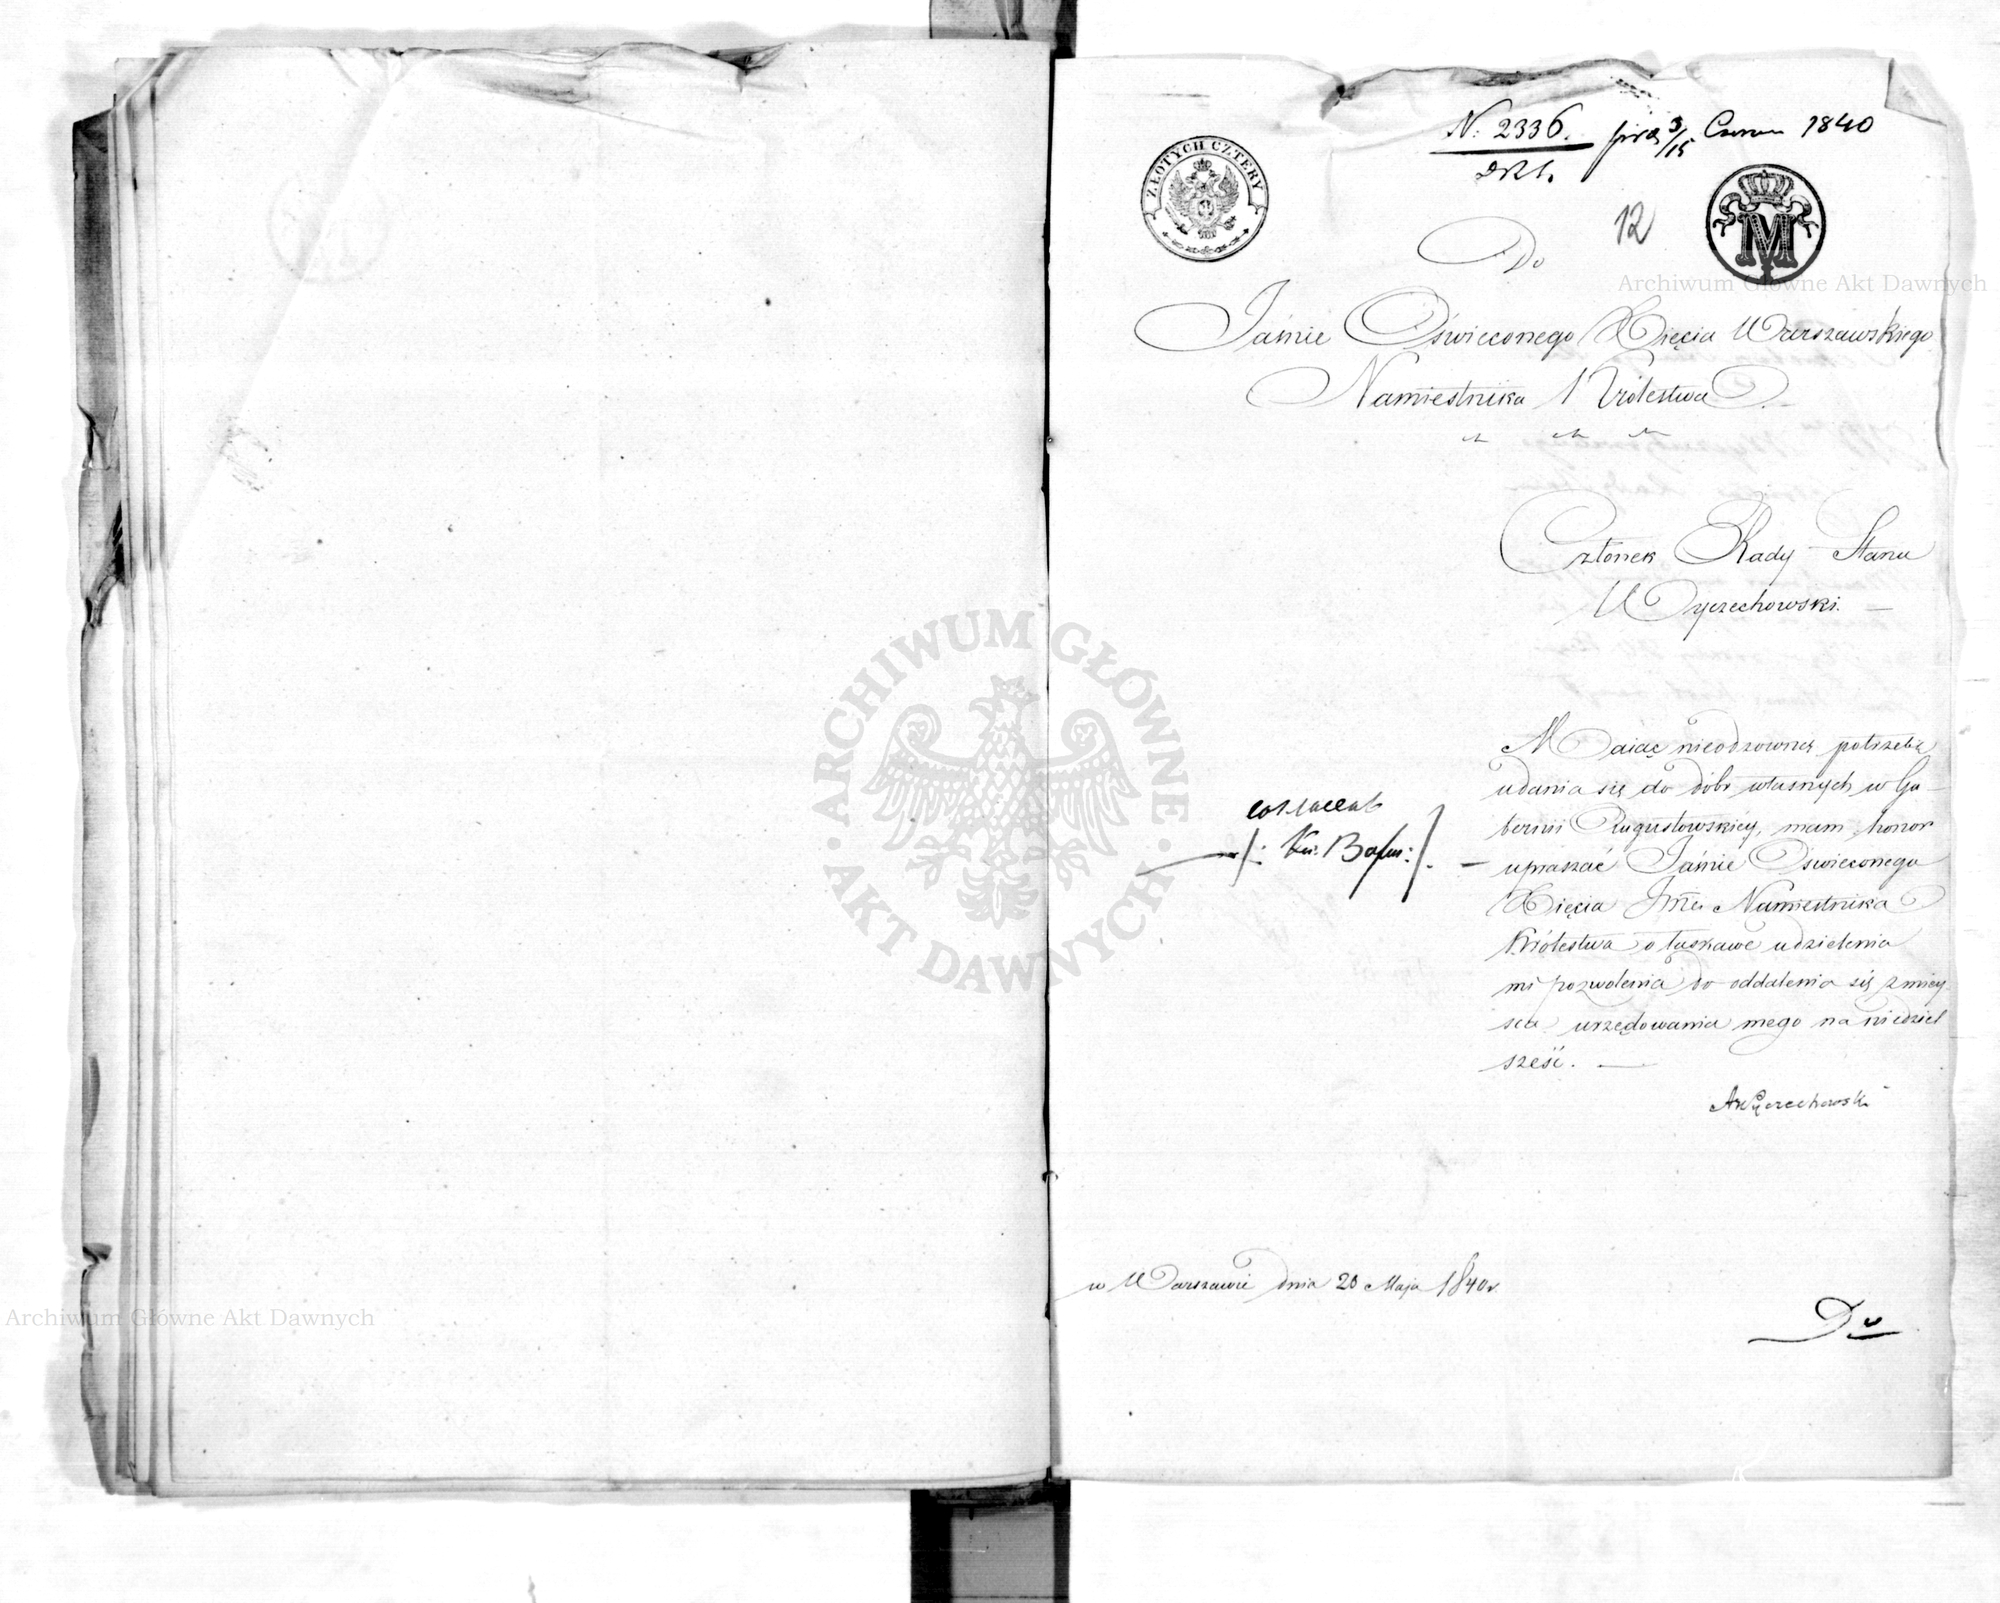 N. 2336. 3/15 1840
ZŁOTYCH CZTERY
12
M
Do
Jaśnie Oświeconego Xięcia Warszawskiego
Namiestnika Królestwa
Członek Rady Stanu
Wyczechowski.
Maiąc nieodzowną potrzebę
udania się do dóbr własnych w Gu-
bernii Augustowskiey, mam honor
upraszać Jaśnie Oświeconego
Xięcia Jmci Namiestnika
Królestwa o łaskawe udzielenia
mi pozwolenia do oddalenia się z miey
sca urzędowania mego na niedziel
sześć.
AWyczechowski
w Warszawie dnia 20 Maja 1840 r.
Archiwum Główne Akt Dawnych
ARCHIWUM GŁÓWNE
AKT DAWNYCH
Archiwum Główne Akt Dawnych